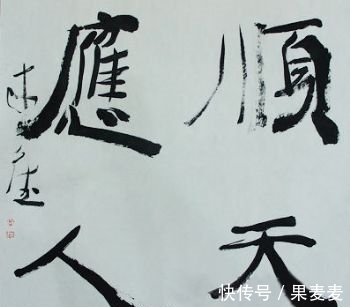 順天
應人
快传号/果麦麦